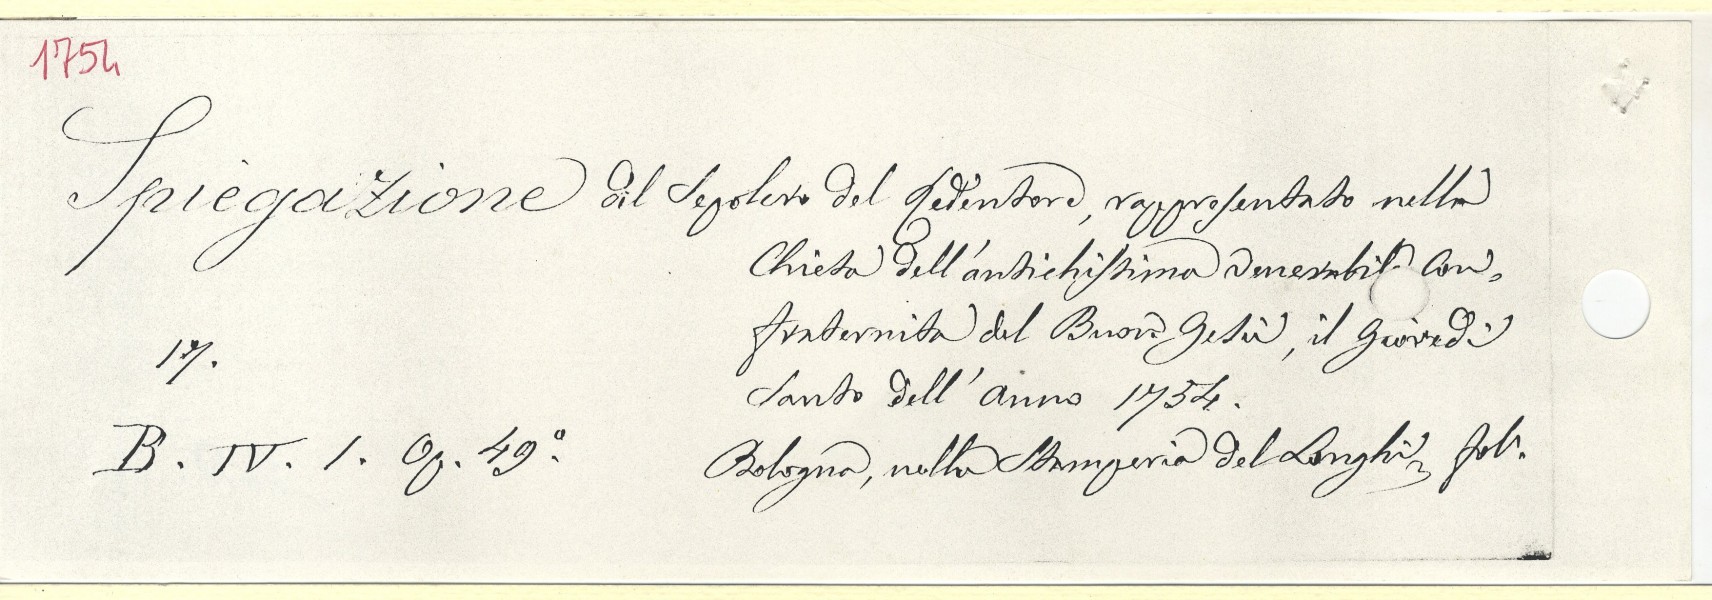 1754
Spiegazione del Sepolcro del Redentore, rappresentato nella
Chiesa dell'antichissima venerabile Con-
fraternita del Buon Gesù, il Giovedì
17.
Santo dell'anno 1754.
B. IV. 1. Op. 49°.
Bologna, nella Stamperia del Longhi, fol.